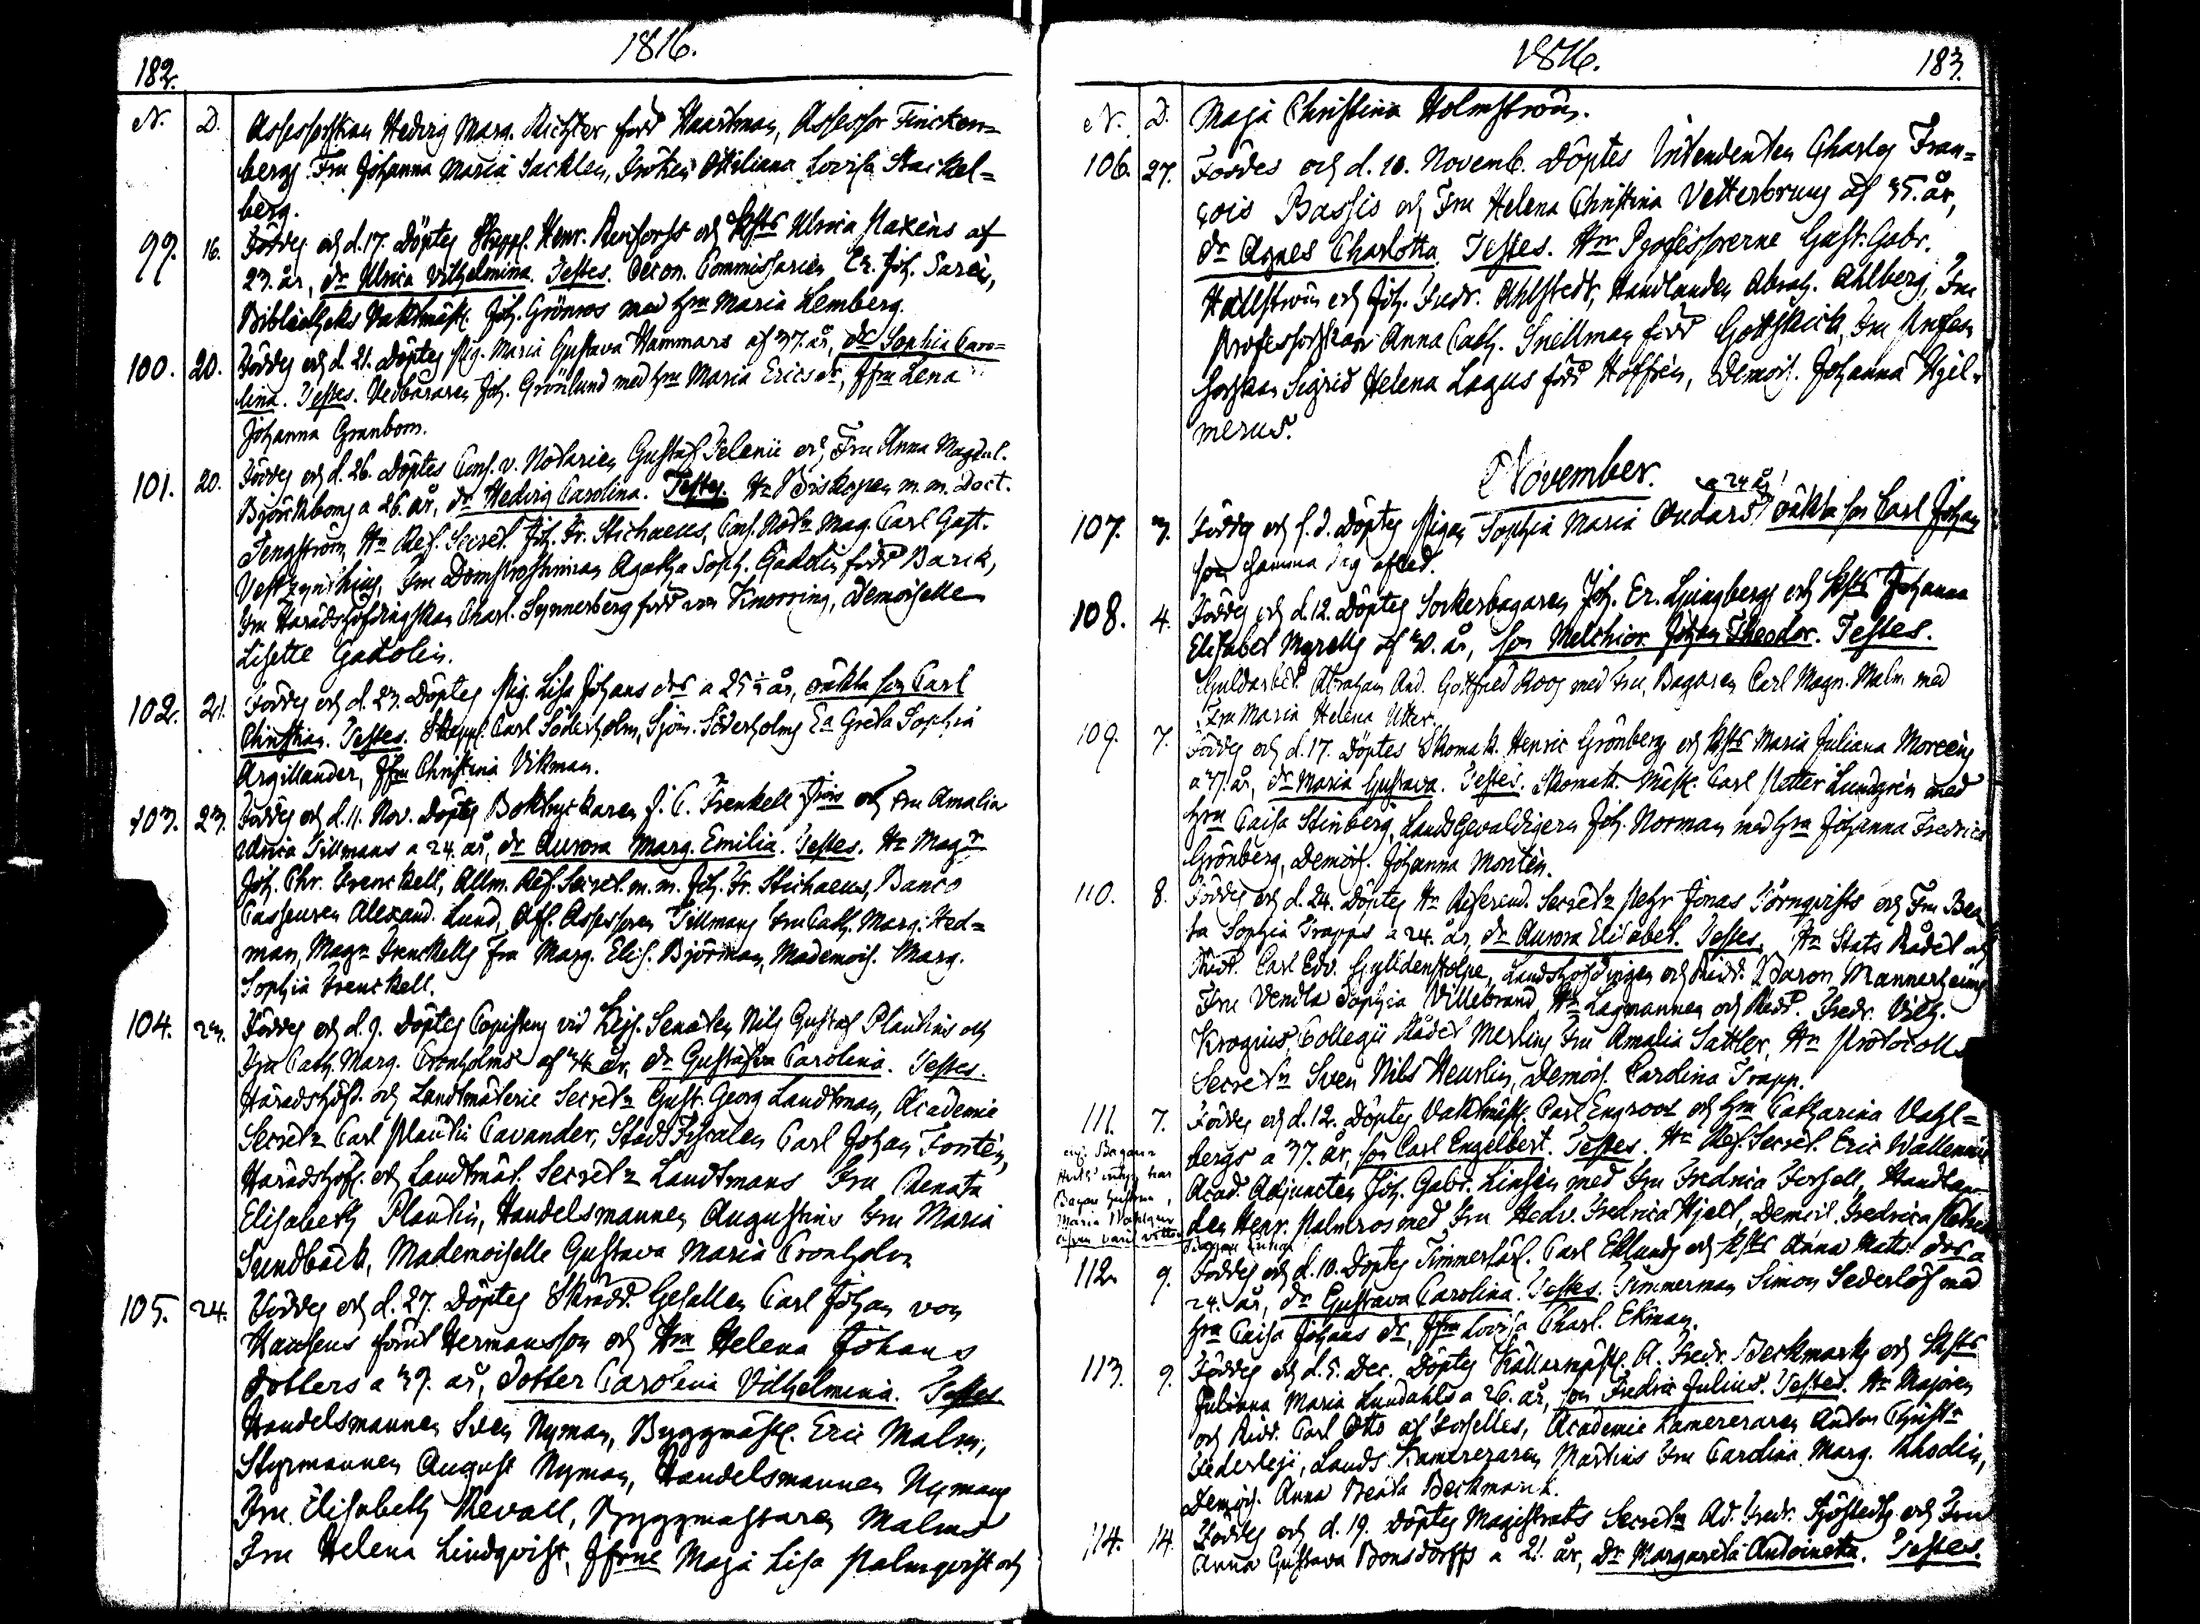 182.
1816.
N. D.
Assessorskan Hedvig Marg. Richter född Haartman, Assessor Finckenbergs Fru Johanna Maria Sacklen, Fröken Ottiliana Lovisa Stackelberg.
99. 16. Föddes och d. 17. Döptes Skepp. Henr. Renfors och Hust. Ulrica Maxens af
23. år, dr Ulrica Vilhelmina. Testes. Oecon. Commissarien Er. Joh. Sarén,
Bibliotheks Vaktmäst. Joh. Grönros med Hru Maria Lemberg.
100. 20. Föddes och d. 21. Döptes Pig. Maria Gustava Hammars af 37. år, dr Sophia Caro=
lina. Testes. Vedbäraren Joh. Grönlund med hru Maria Ericsdr, Jfru Lena
Johanna Granbom.
101. 20. Föddes och d. 26. Döptes Cons. v. Notarien Gustaf Idenii och Fru Anna Magdal.
Björckboms a 26. år, dr Hedvig Carolina. Testes. Hr Biskopen m. m. Doct.
Tengström, Hr Ref. Secret. Joh. Fr. Stichaeus, Cons. Notr Mag. Carl Gust.
Vestzynthius, Fru Domprostinnan Agatha Soph. Gadolin född Barck,
Fru Häradshöfdingskan Charl. Synnerberg född von Knorring, Demoiselle
Lisette Gadolin.
102. 21. Föddes och d. 23. Döptes Pig. Lisa Johans dr a 25½ år, oäkta son Carl
Christian. Testes. Skepp. Carl Söderholm, Sjöm. Söderholms E Greta Sophia
Argillander, Jfru Christina Vikman.
103. 23. Föddes och d. 11. Nov. Döptes Boktryckaren J. C. Frenkell och Fru Amalia
Ulrica Tillmans a 24. år, dr Aurora Marg. Emilia. Testes. Hr Magr
Joh. Chr. Frenckell, Allm. Ref. Secret. m. m. Joh. Fr. Stichaeus, Banco
Casseuren Alexand. Lund, Ass. Assessoren Tillmans Fru Cath. Marg. Hed=
man, Magr Frenckells fru Marg. Elis. Björman, Mademois. Marg.
Sophia Frenckell.
104. 23. Föddes och d. 9. Döptes Copistens vid Kejs. Senaten Nils Gustaf Plantins och
Fru Cath. Marg. Cronholms af 34 år, dr Gustafva Carolina. Testes.
Häradshöfd. och Landtmäterie Secretr Gust. Georg Landtman, Academie
Secretr Carl Plantin Cavander, Stads Fiscalen Carl Johan Fortén,
Häradshöf. och Landtmät. Secretr Landtmans Fru Renata
Elisabeth Plantin, Handelsmannen Augustins Fru Maria
Sundbäck, Mademoiselle Gustava Maria Cronholm
105. 24. Föddes och d. 27. Döptes Skradd. Gesällen Carl Johan von
Hausens förut Hermansson och Hru Helena Johans
dotters a 39. år, Dotter Carolina Vilhelmina. Testes.
Handelsmannen Sven Nyman, Byggmäst. Eric Malm,
Styrmannen August Nyman, Handelsmannen Nymans
Fru Elisabeth Revall, Byggmästaren Malms
Fru Helena Lindqvist, Jfrue Maja Lisa Palmqvist och
1816.
183.
N. D.
Maja Christina Holmström.
106. 27. Föddes och d. 10. Novemb. Döptes Intendenten Charles Fran=
çois Bassis och Fru Helena Christina Vetterbrung af 35. år,
dr Agnes Charlotta. Testes. Hrr Professorerne Gust. Gabr.
Hällström och Joh. Fredr. Ahlstedt, Handlanden Abrah. Ahlberg, Fru
Professorskan Anna Cath. Snellman född Gottskick, Fru Profes
sorskan Sigrid Helena Lagus född Hoffrén, Demois. Johanna Hjel
merus.
November.
a 24 år
107. 3. Föddes och s. d. Döptes Pigan Sophia Maria Oudars oäkta son Carl Johan
som samma dag afled.
108. 4. Föddes och d. 12. Döptes Sockerbagaren Joh. Er. Ljungbergs och Hust Johanna
Elisabet Myrells af 30. år, son Melchior Johan Theodor. Testes.
Guldarbet. Abraham And. Gottfried Roos med Fru, Bagaren Carl Magn. Malm med
Fru Maria Helena Utter.
109. 7. Föddes och d. 17. Döptes Skomak. Henric Grönbergs och Hust Maria Juliana Moreens
a 37. år, dr Maria Gustava. Testes. Skomak. Mäst. Carl Petter Lundgrén med
hru Caisa Stinberg, Lands Gevaldigern Joh. Norman med hru Johanna Fredrica
Grönberg, Demois. Johanna Montén.
110. 8. Föddes och d. 24. Döptes Hr Referend. Secretr Pehr Jonas Törnqvists och Fru Bea
ta Sophia Trapps a 24. år, dr Aurora Elisabet. Testes. Hr Stats Rådet och
Ridd. Carl Edv. Gyldenstolpe, Landshöfdingen och Ridd. Baron Mannerheims
Fru Vendla Sophia Villebrand, Hr Lagmannen och Ridd. Fredr. Vilh.
Krogius, Collegii Rådet Merlins Fru Amalia Sattler, Hr Protocolls
Secretr Sven Nils Heurlin, Demois. Carolina Trapp.
111. 7. Föddes och d. 12. Döptes Vaktmäst. Carl Engroos och hru Catharina Vahl=
bergs a 37. år, son Carl Engelbert. Testes. Hr Ref. Secret. Eric Wallenius
Acad. Adjuncten Joh. Gabr. Linsén med Fru Fredrica Forsell, Handlan
den Henr. Palmros med Fru Hedv. Fredrica Hjelt, Demois. Fredrica
112. 9. Föddes och d. 10. Döptes Timmerkarl. Carl Eklunds och Hust Anna Mats dr a
24. år, dr Gustava Carolina. Testes. Timmerman Simon Sederlöf med
hru Caisa Johans dr, Jfru Lovisa Charl. Ekman.
113. 9. Föddes och d. 5. Dec. Döptes Källarmäst. A. Fredr. Beckmarks och Hust
Juliana Maria Lundahls a 26. år, son Fredric Julius. Testes. Hr Majoren
och Ridd. Carl Otto af Forselles, Academie Kamereraren Anton Christr
Federleji, Lands Kamereraren Martins Fru Carolina Marg. Rhodin,
Demois. Anna Beata Beckmark.
114. 14. Föddes och d. 19. Döptes Magistrats Secretr Ad. Fredr. Sjöstedts och Fru
Anna Gustava Bonsdorffs a 21. år, Dr Margareta Antoinetta. Testes.